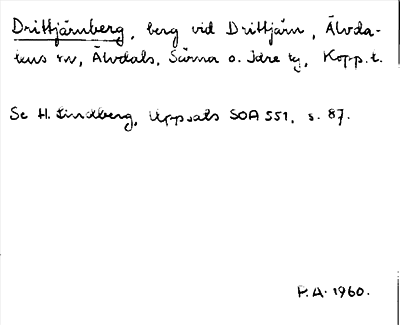 Drittjärnberg, berg vid Drittjärn, Älvda-
lens rv, Älvdals, Särna o. Idre tg, Kopp. l.
Se H. Lindberg, Uppsats SOA 551, s. 87.
P.A. 1960.